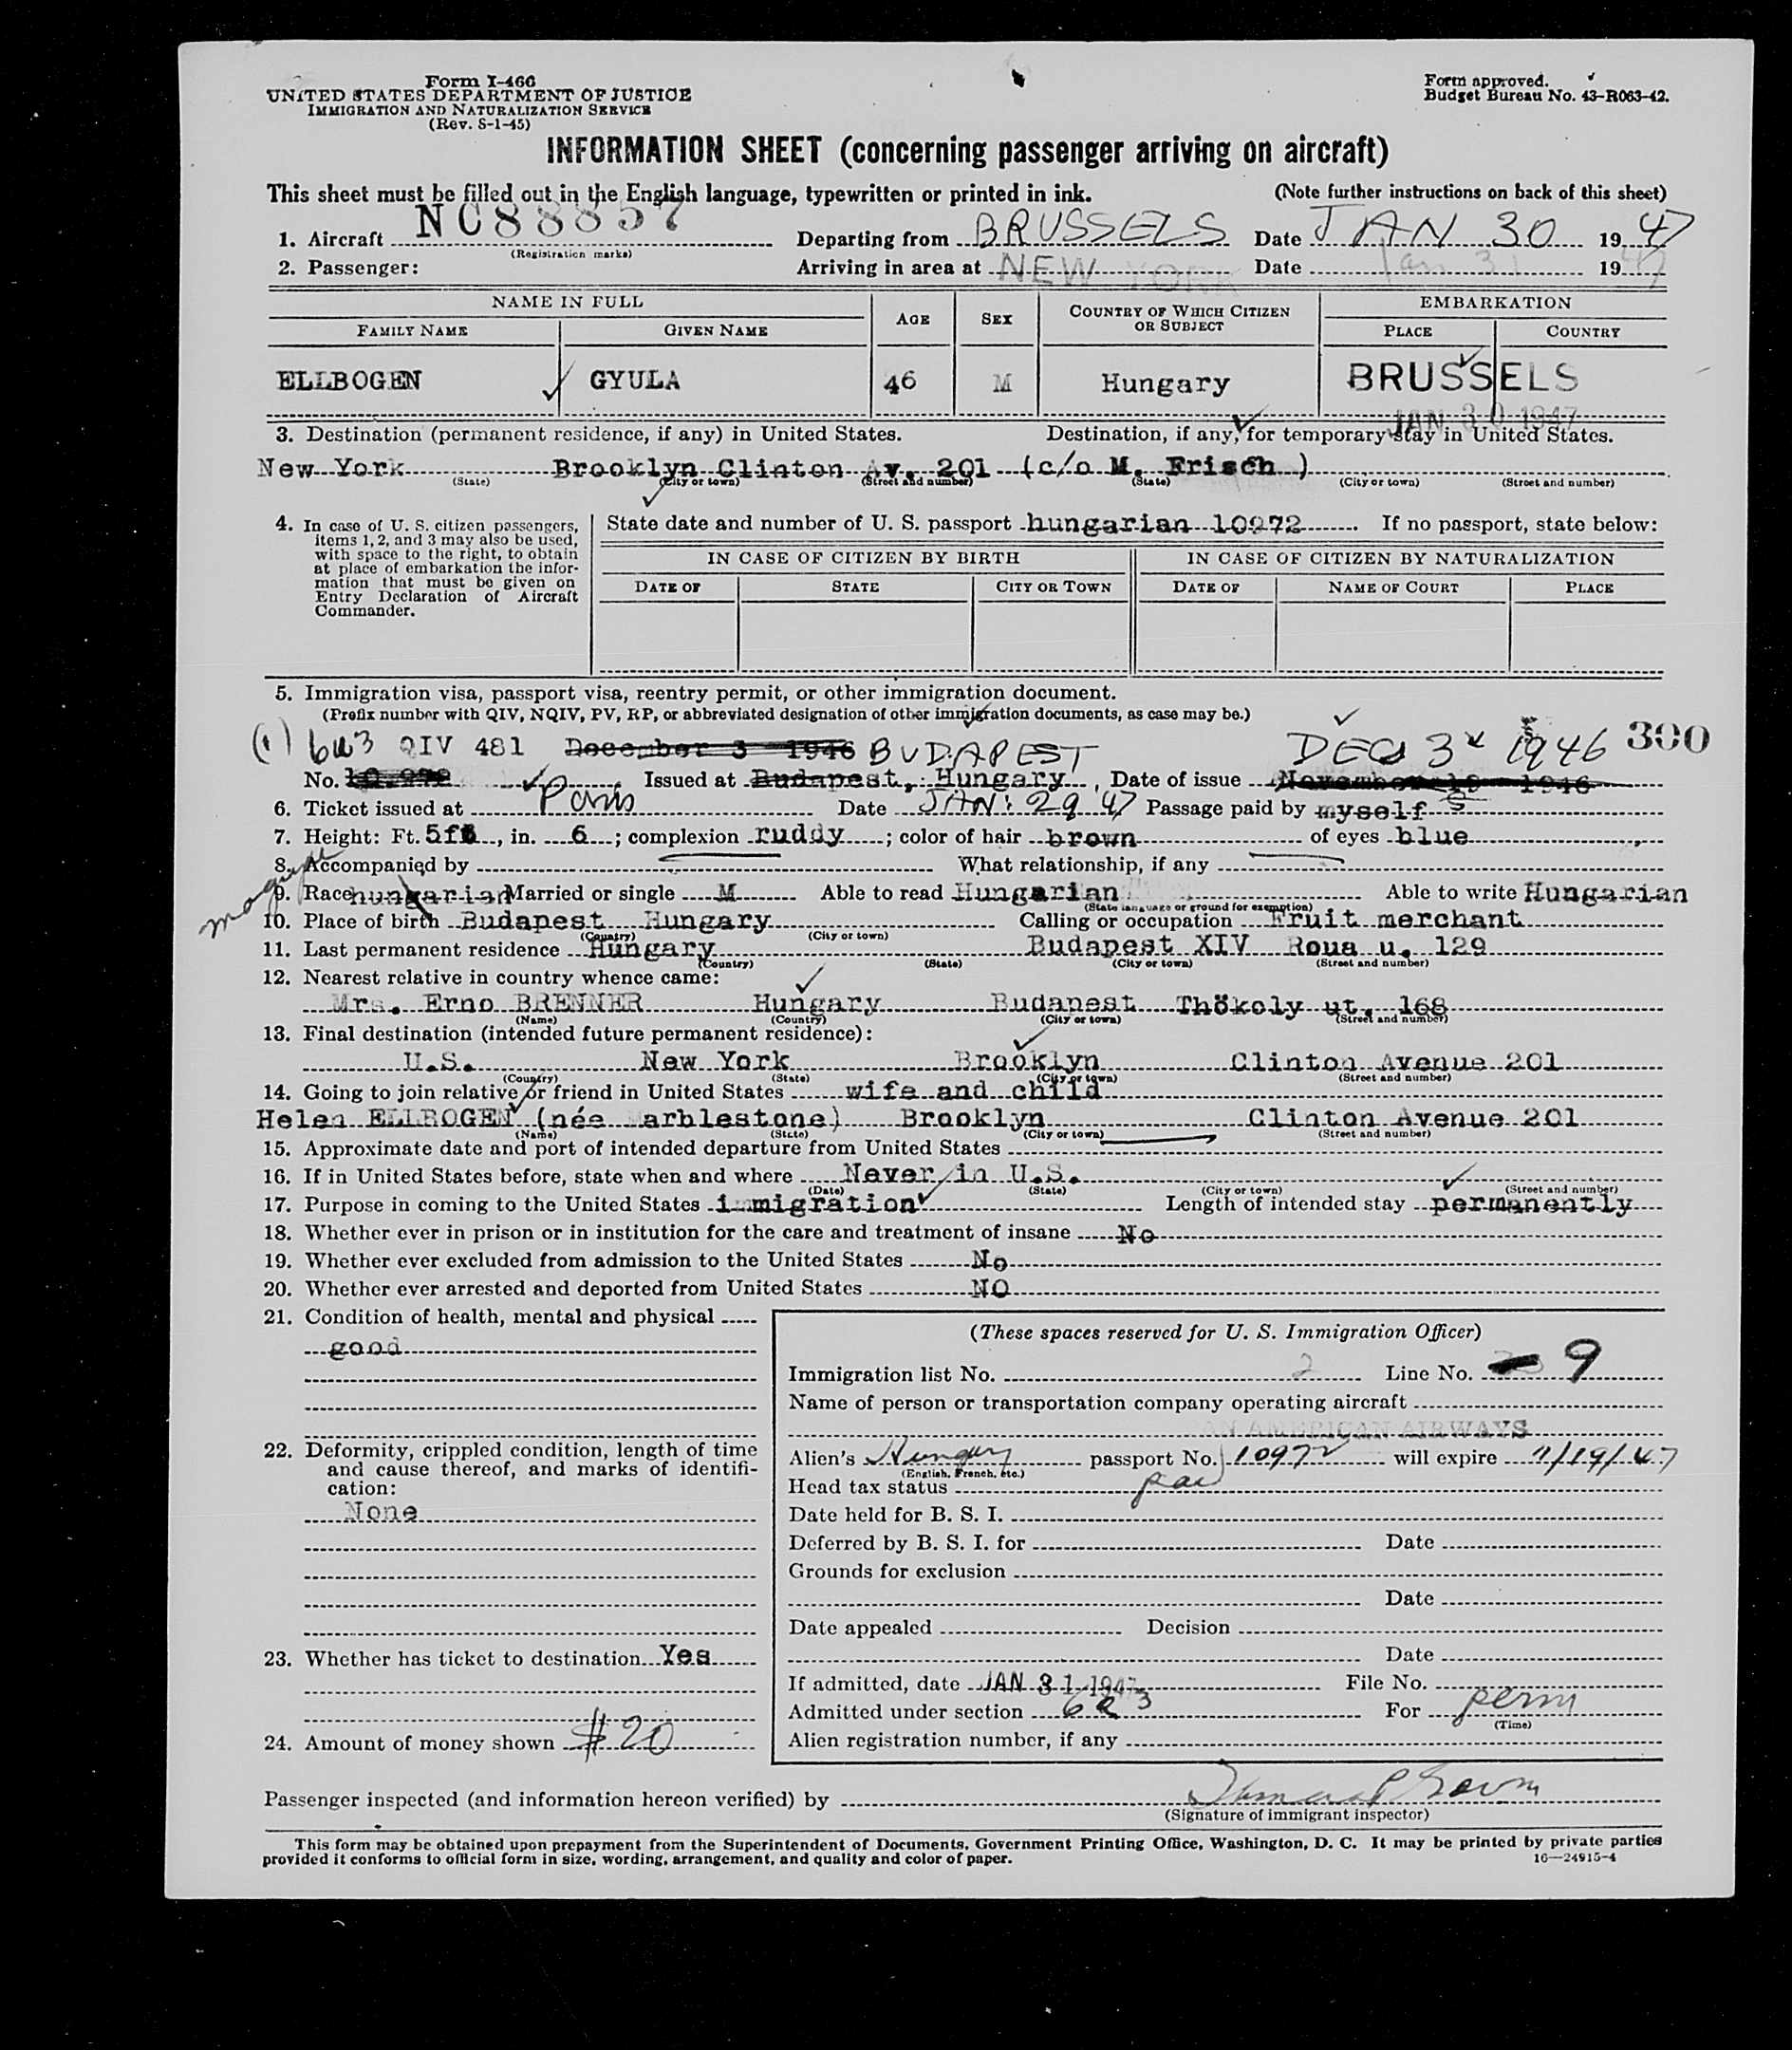 Form I-466
UNITED STATES DEPARTMENT OF JUSTICE
IMMIGRATION AND NATURALIZATION SERVICE
(Rev. S-1-45)
Form approved.
Budget Bureau No. 43-R063-42.
INFORMATION SHEET (concerning passenger arriving on aircraft)
This sheet must be filled out in the English language, typewritten or printed in ink. (Note further instructions on back of this sheet)
1. Aircraft NC88857 Departing from BRUSSELS Date JAN 30 1947
(Registration marks)
2. Passenger: Arriving in area at NEW YORK Date Jan 31 1947
NAME IN FULL AGE SEX COUNTRY OF WHICH CITIZEN OR SUBJECT EMBARKATION
FAMILY NAME GIVEN NAME PLACE COUNTRY
ELLBOGEN GYULA 46 M Hungary BRUSSELS
JAN 30 1947
3. Destination (permanent residence, if any) in United States. Destination, if any, for temporary stay in United States.
New York Brooklyn Clinton Av. 201 (c/o M. Frisch )
(State) (City or town) (Street and number) (State) (City or town) (Street and number)
4. In case of U. S. citizen passengers, items 1, 2, and 3 may also be used, with space to the right, to obtain at place of embarkation the information that must be given on Entry Declaration of Aircraft Commander.
State date and number of U. S. passport hungarian 10972 If no passport, state below:
IN CASE OF CITIZEN BY BIRTH IN CASE OF CITIZEN BY NATURALIZATION
DATE OF STATE CITY OR TOWN DATE OF NAME OF COURT PLACE
5. Immigration visa, passport visa, reentry permit, or other immigration document.
(Prefix number with QIV, NQIV, PV, RP, or abbreviated designation of other immigration documents, as case may be.)
(1) 6a3 QIV 481 December 3 1946 BUDAPEST DEC 3 1946 300
No. 10.972 Issued at Budapest, Hungary, Date of issue November 19 1946
6. Ticket issued at Paris Date JAN. 29 47 Passage paid by myself
7. Height: Ft. 5ft, in. 6; complexion ruddy; color of hair brown of eyes blue
8. Accompanied by What relationship, if any
magyar
9. Race hungarian Married or single M Able to read Hungarian Able to write Hungarian
(State language or ground for exemption)
10. Place of birth Budapest Hungary Calling or occupation Fruit merchant
(Country) (City or town)
11. Last permanent residence Hungary Budapest XIV Roua u. 129
(Country) (State) (City or town) (Street and number)
12. Nearest relative in country whence came:
Mrs. Erno BRENNER Hungary Budapest Thököly ut. 168
(Name) (Country) (City or town) (Street and number)
13. Final destination (intended future permanent residence):
U.S. New York Brooklyn Clinton Avenue 201
(Country) (State) (City or town) (Street and number)
14. Going to join relative or friend in United States wife and child
Helen ELLBOGEN (née Marblestone) Brooklyn Clinton Avenue 201
(Name) (State) (City or town) (Street and number)
15. Approximate date and port of intended departure from United States
16. If in United States before, state when and where Never in U.S.
(Date) (State) (City or town) (Street and number)
17. Purpose in coming to the United States immigration Length of intended stay permanently
18. Whether ever in prison or in institution for the care and treatment of insane No
19. Whether ever excluded from admission to the United States No
20. Whether ever arrested and deported from United States NO
21. Condition of health, mental and physical
good
22. Deformity, crippled condition, length of time and cause thereof, and marks of identification:
None
23. Whether has ticket to destination Yes
24. Amount of money shown $20
(These spaces reserved for U. S. Immigration Officer)
Immigration list No. 2 Line No. 9
Name of person or transportation company operating aircraft
PAN AMERICAN AIRWAYS
Alien's Hungary passport No. 10972 will expire 11/19/47
(English, French, etc.)
Head tax status
Date held for B. S. I.
Deferred by B. S. I. for Date
Grounds for exclusion
Date
Date appealed Decision
Date
If admitted, date JAN 31 1947 File No.
Admitted under section 6a3 For perm
(Time)
Alien registration number, if any
Passenger inspected (and information hereon verified) by
(Signature of immigrant inspector)
This form may be obtained upon prepayment from the Superintendent of Documents, Government Printing Office, Washington, D. C. It may be printed by private parties
provided it conforms to official form in size, wording, arrangement, and quality and color of paper. 16—24915-4